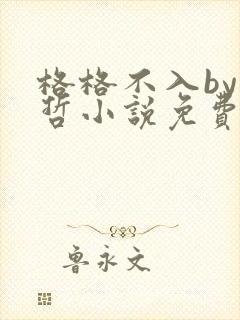 格格不入by
哲小說免費
魯永文